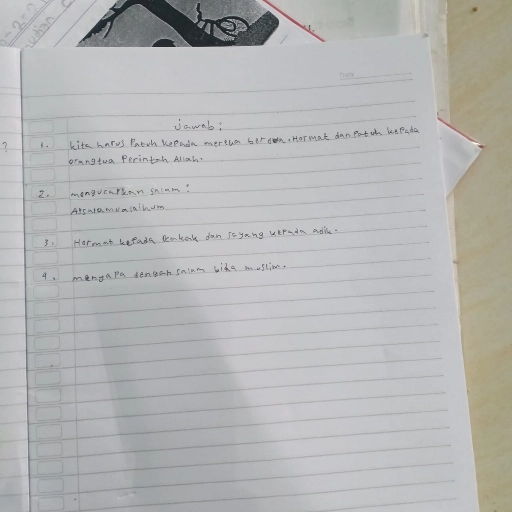 Date
Jawab:
1. kita harus Patuh kepada mereka ber dua. Hormat dan Patuh kepada
orangtua Perintah Allah.
2. mengucapkan salam:
3. Hormat kepada kakak dan sayang kepada adik.
4. menyapa dengan salam bika muslim.
?